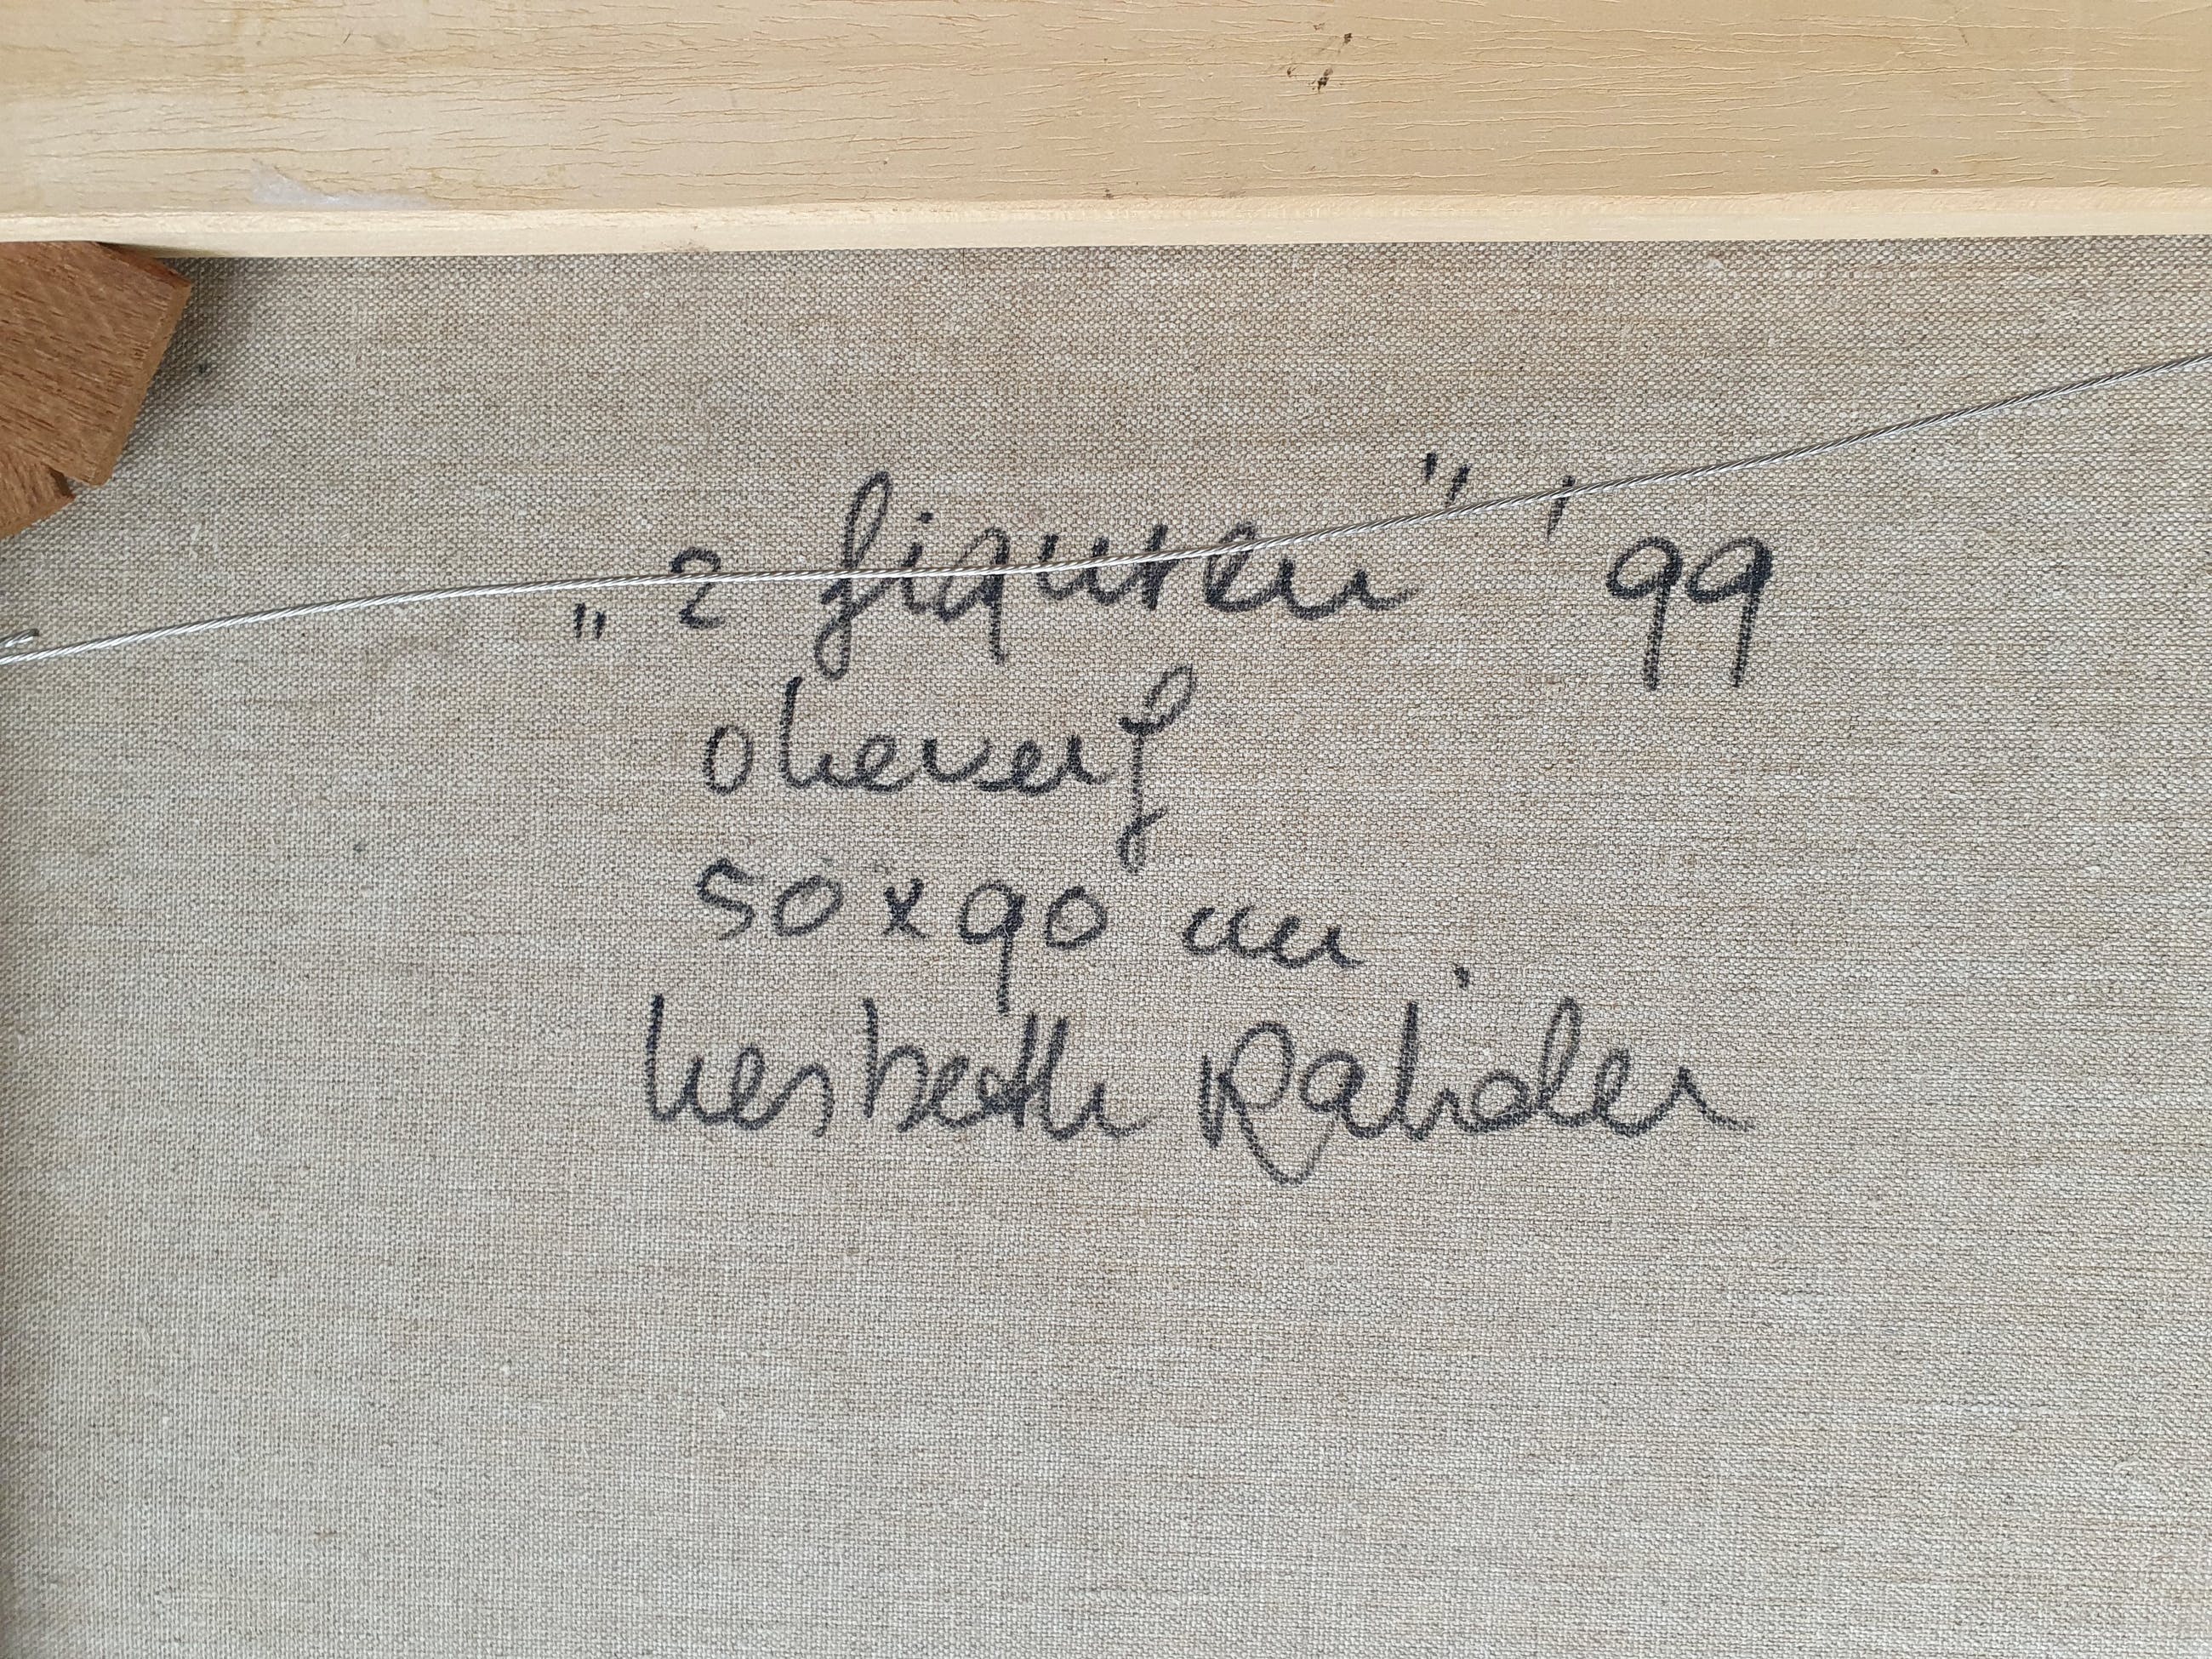 „2 figuren" '99
olieverf
50 x 90 cm.
Liesbeth Rahder